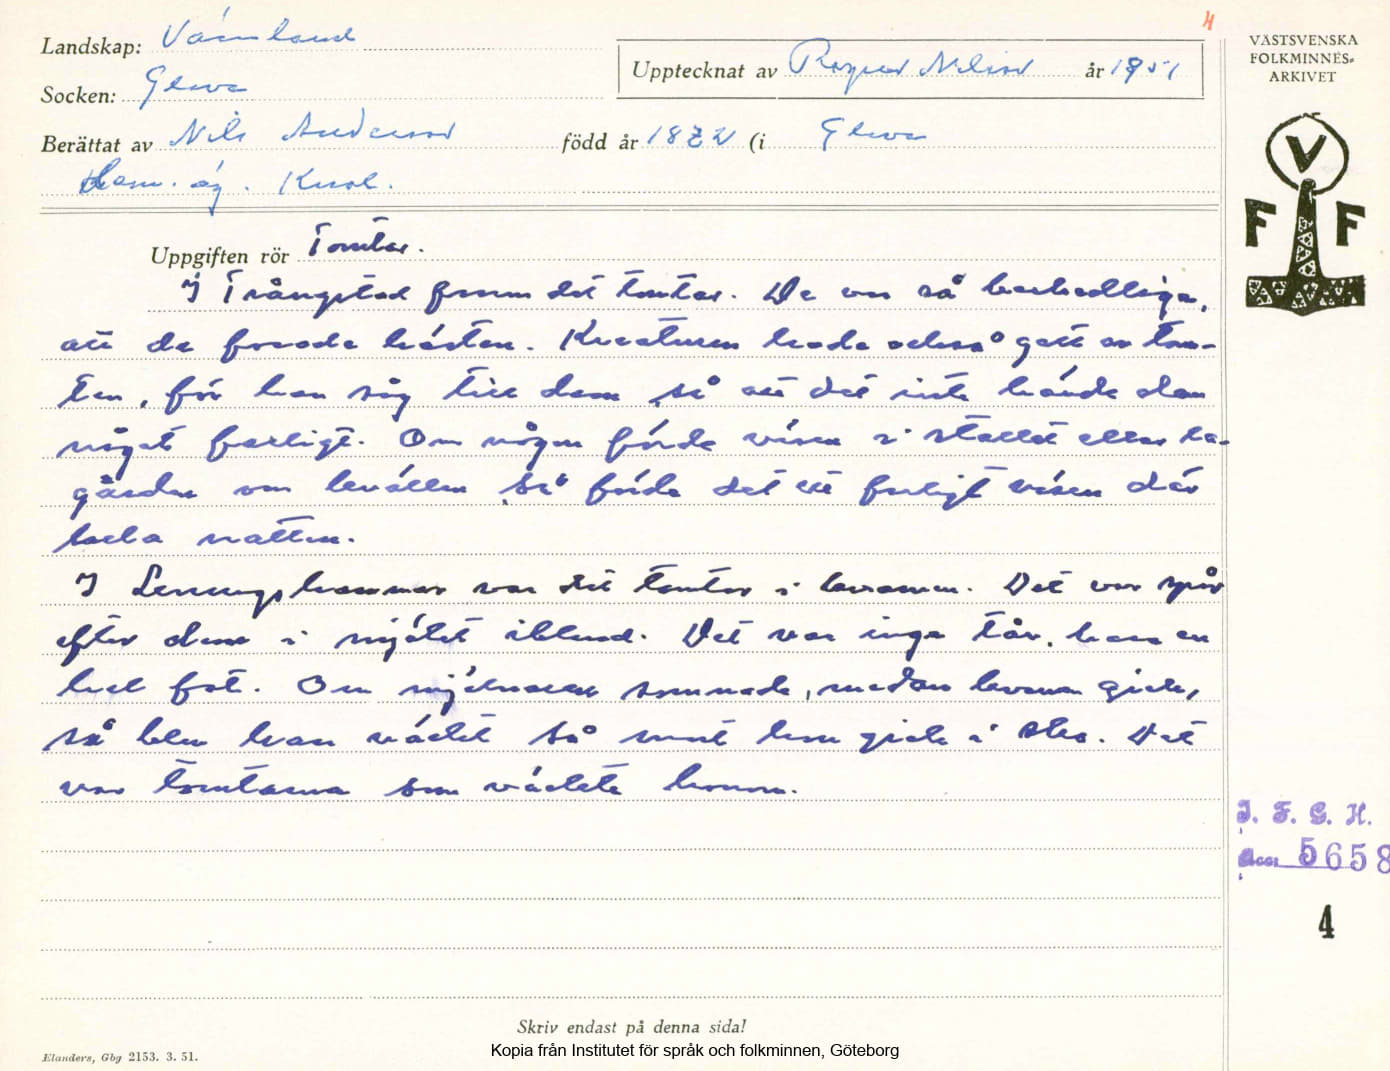 4
Landskap: Värmland
Socken: Glava
Upptecknat av Ragnar Nilsson år 1951
Berättat av Nils Andersson född år 1872 (i Glava
Hem. äg.
VÄSTSVENSKA
FOLKMINNES-
ARKIVET
V
F F
Uppgiften rör Tomtar.
I Trångstad fanns det tomtar. De var så beskedliga,
att de fodrade hästen. Kreaturen hade också gott av tom-
ten, för han såg till dem så att det inte hände dem
något farligt. Om någon förde väsen i stallet eller la-
gården om kvällen så förde det ett farligt väsen där
hela natten.
I Lenungshammar var det tomtar i kvarnen. Det var spår
efter dem i mjölet ibland. Det var inga tår, bara en
hel fot. Om mjölnaren somnade, medan kvarnen gick,
så blev han väckt så snart den gick i sten. Det
var tomtarna som väckte honom.
I. F. G. H.
Acc. 5658
4
Skriv endast på denna sida!
Elanders, Gbg 2153. 3. 51.
Kopia från Institutet för språk och folkminnen, Göteborg